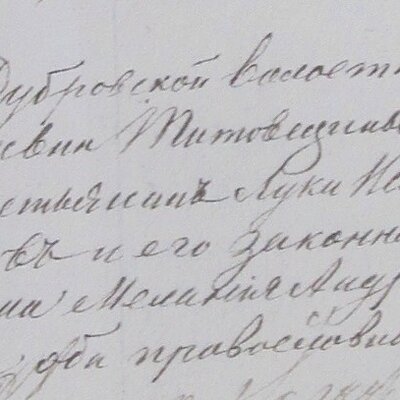 Дубровской волост
евни Титовщины
естьянинъ Лука
въ и его законна
на Меланія Анд
оба православны